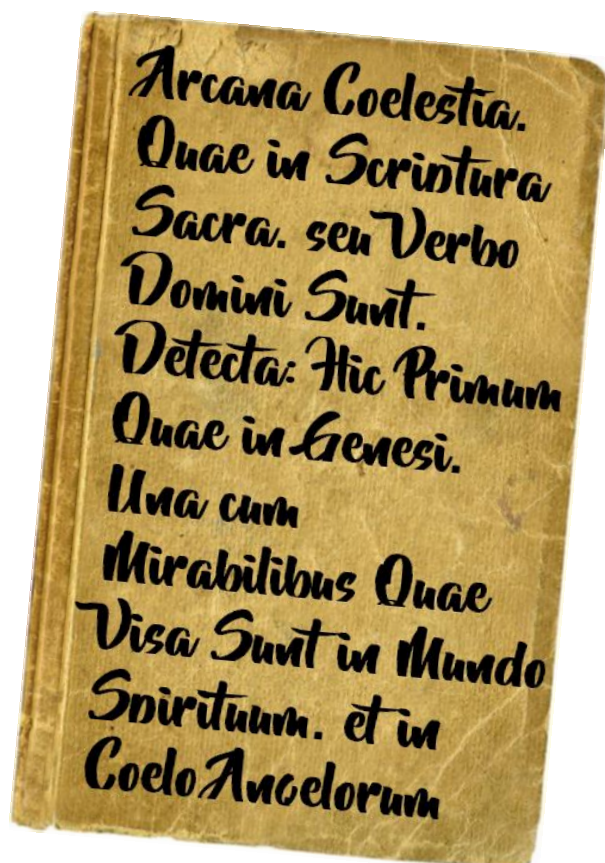 Arcana Coelestia.
Quae in Scriptura
Sacra. seu Verbo
Domini Sunt.
Detecta: Hic Primum
Quae in Genesi.
Una cum
Mirabilibus Quae
Visa Sunt in Mundo
Spirituum. et in
Coelo Angelorum